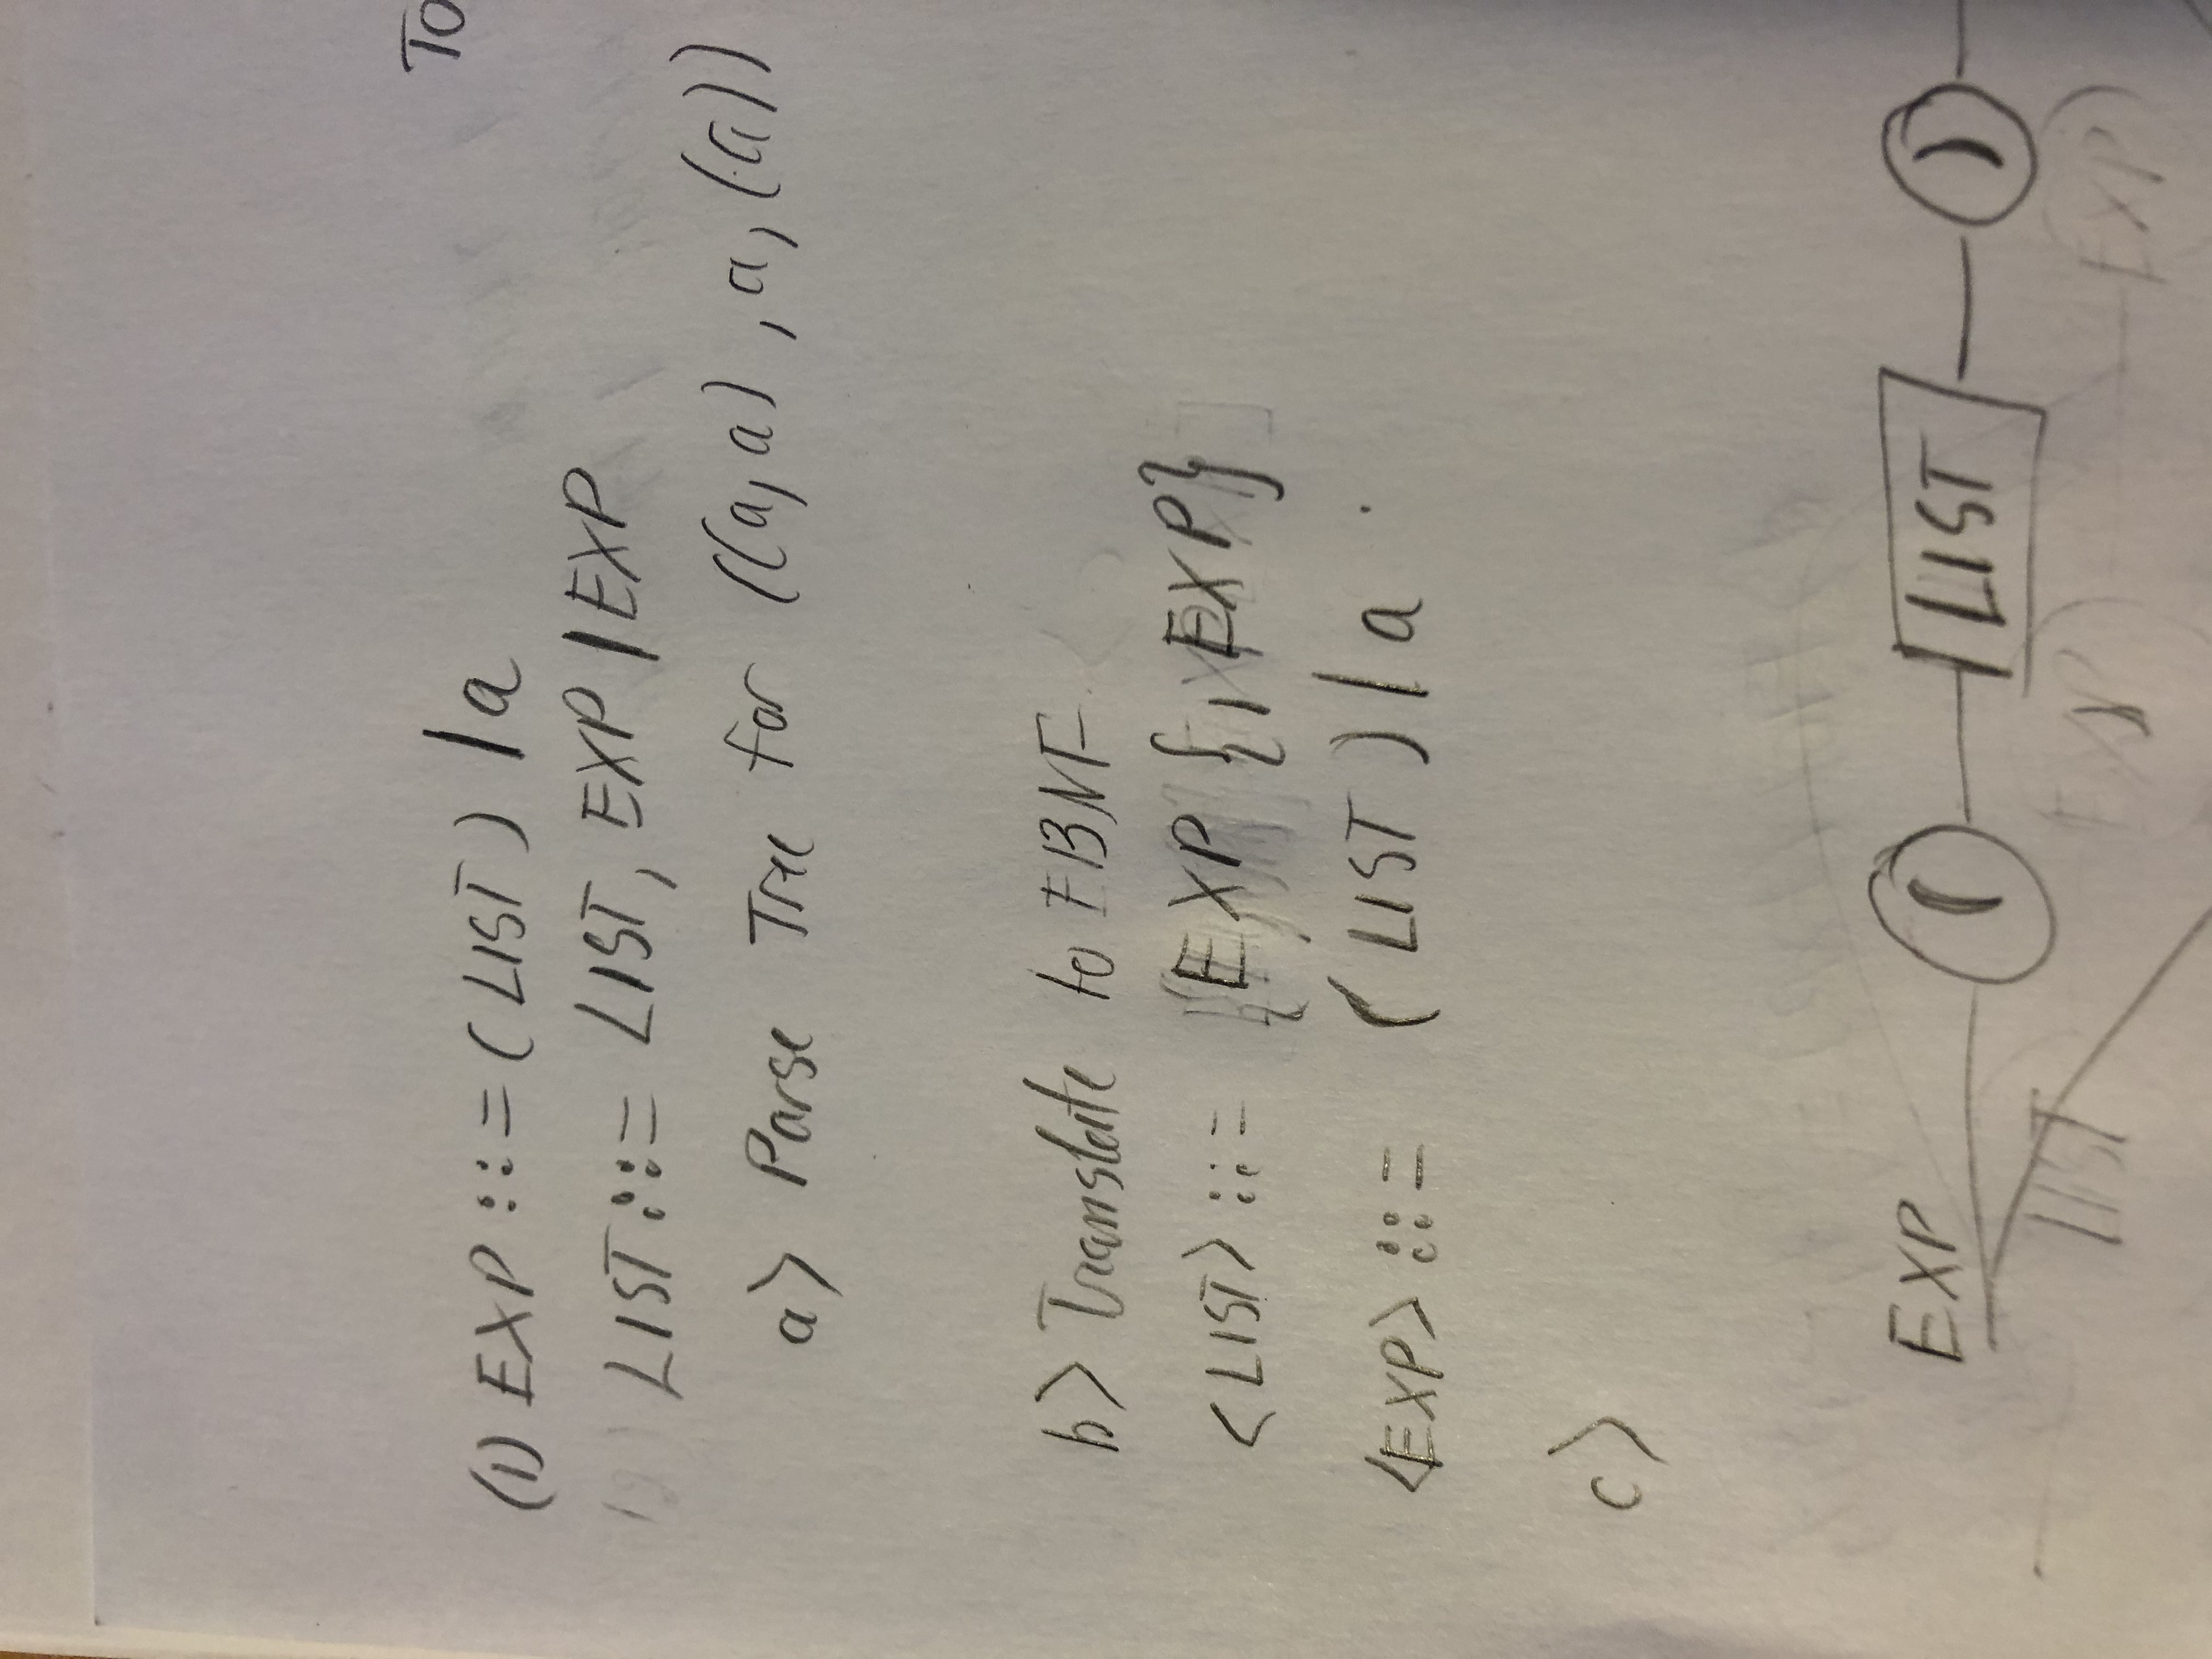 To
(1) EXP ::= (LIST) | a
LIST ::= LIST, EXP | EXP
a> Parse Tree for ((a,a) , a, (a))
b> Translate to EBNF
<LIST> ::= EXP {, EXP}
<EXP> ::= (LIST) | a
c>
EXP ( LIST )
LIST EXP EXP